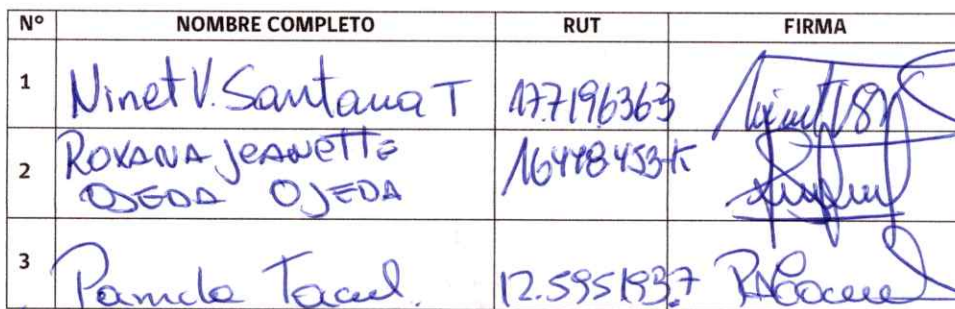 Nº NOMBRE COMPLETO RUT FIRMA
1 Ninet V. Santana T 17.7196363
2 ROXANA JEANETTE
OJEDA OJEDA 16448453-K
3 Pamela Tacul. 12.5951937